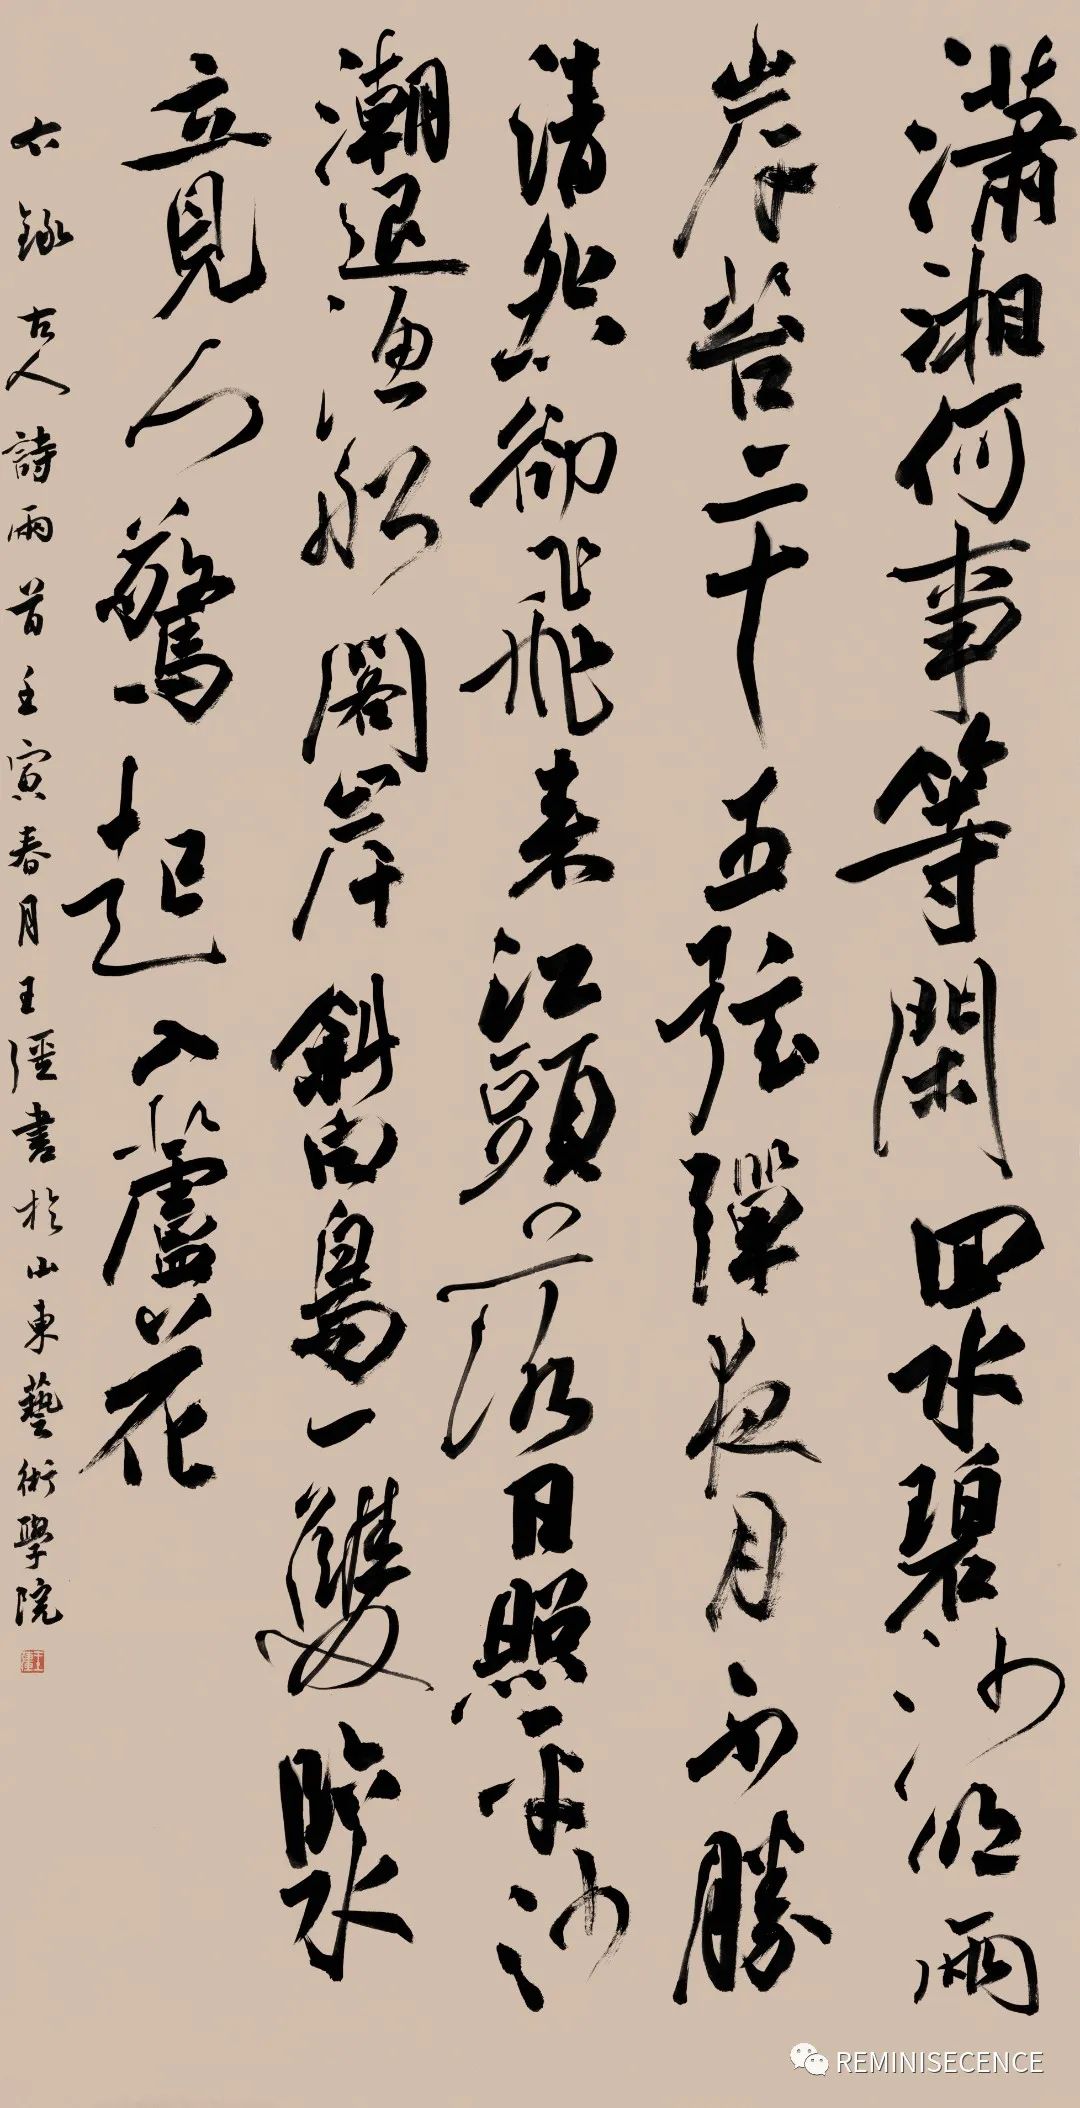 瀟湘何事等閑回水碧沙明兩
岸苔二十五弦彈夜月不勝
清怨卻飛飛來江頭落日照平沙
潮退漁船閣岸斜白鳥一雙臨水
立見人驚起入蘆花
右錄古人詩兩首壬寅春月王㢵書於山東藝術學院
REMINISECENCE